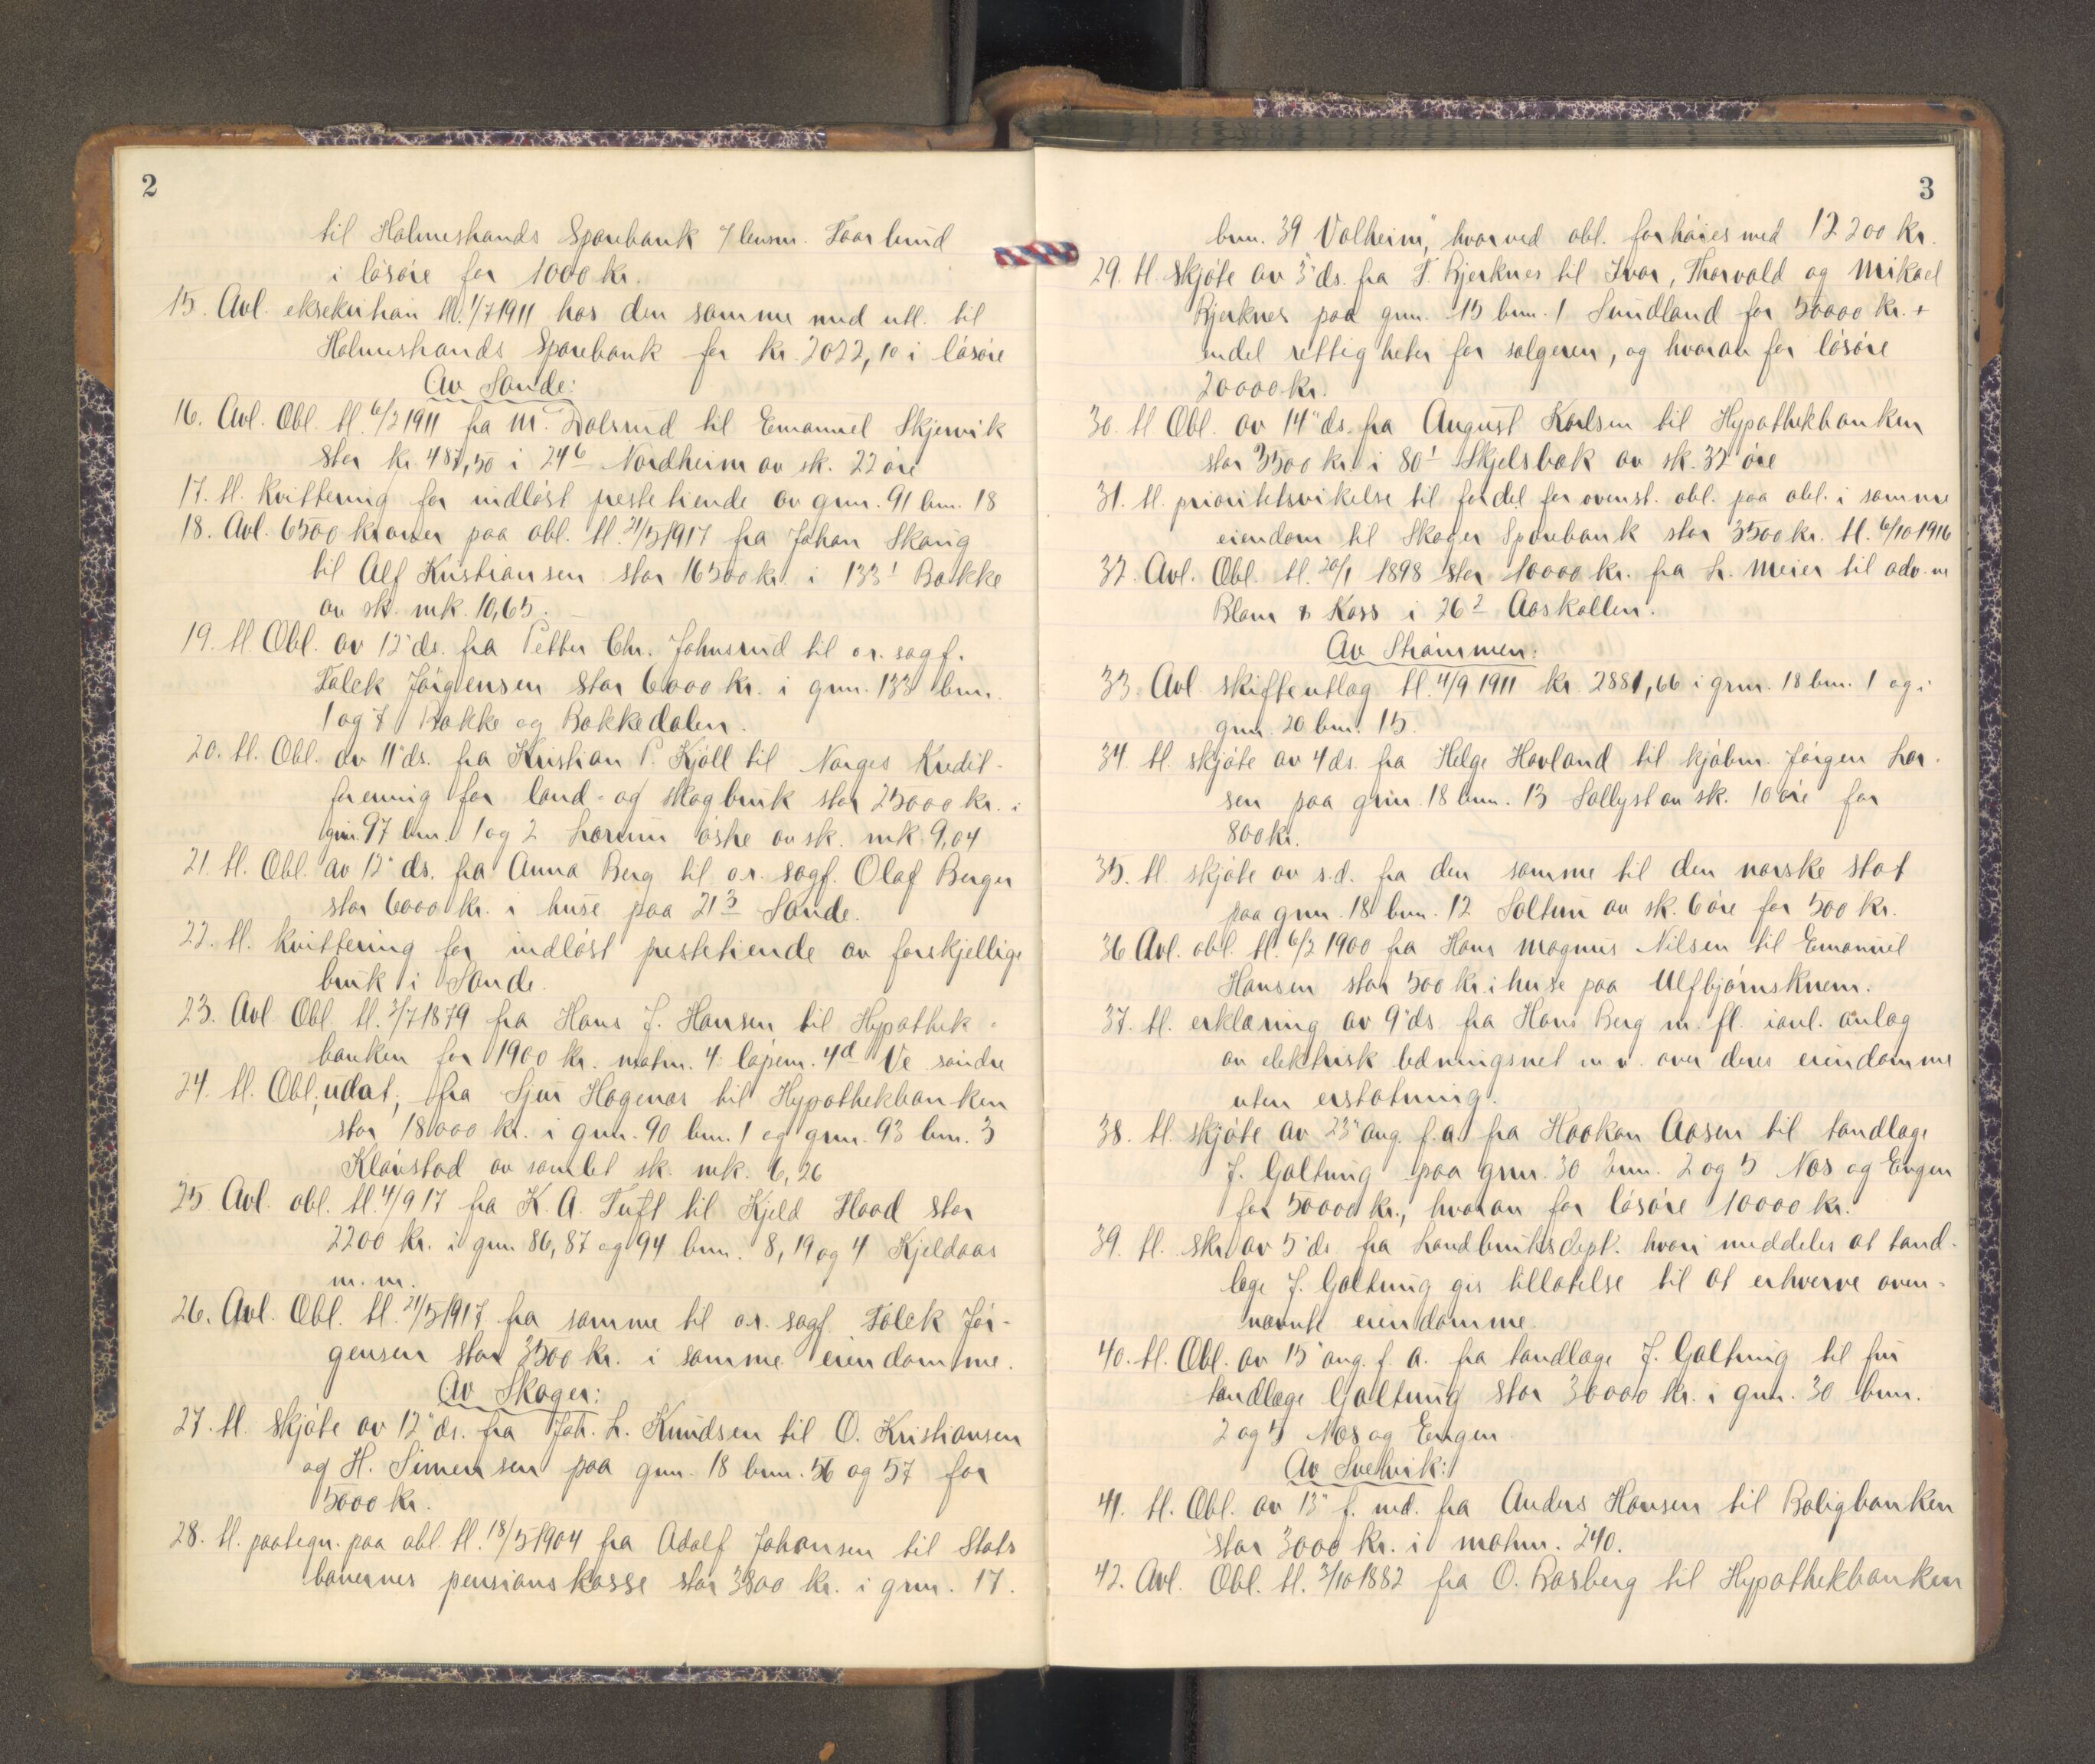 2
til Holmestrands Sparebank v/ lensm. Taarlund
i løsøre for 1000 kr.
15. Avl. eksekution tl. 1/7 1911 hos den samme med utl. til
Holmestrands Sparebank for kr. 2022,10 i løsøre
Av Sande:
16. Avl. Obl. tl. 6/2 1911 fra M. Dalsrud til Emanuel Skjervik
stor kr. 487,50 i 24⁶ Nordheim av sk. 22 øre
17. tl. kvittering for indløst prestetiende av gnr. 91 bnr. 18
18. Avl. 6500 kroner paa obl. tl. 21/5 1917 fra Johan Skaug
til Alf Kristiansen stor 16500 kr. i 133¹ Bakke
av sk. mk. 10,65.
19. tl. Obl. av 12" ds. fra Petter Chr. Johnsrud til o.r. sagf.
Falck Jørgensen stor 6000 kr. i gnr. 133 bnr.
1 og 7 Bakke og Bakkedalen.
20. tl. Obl. av 11" ds. fra Kristian P. Kjøll til Norges Kredit-
forening for land- og skogbruk stor 25000 kr. i
gnr. 97 bnr. 1 og 2 Lørum østre av sk. mk. 9,04
21. tl. Obl. av 12" ds. fra Anna Berg til o.r. sagf. Olaf Berger
stor 6000 kr. i huse paa 21³ Sande.
22. tl. kvittering for indløst prestetiende av forskjellige
bruk i Sande.
23. Avl Obl. tl. 3/7 1879 fra Hans J. Hansen til Hypothek-
banken for 1900 kr. matnr. 4 løpenr. 4d Ve søndre
24. tl. Obl., udat., fra Sjur Hagenæs til Hypothekbanken
stor 18000 kr. i gnr. 90 bnr. 1 og gnr. 93 bnr. 3
Klævstad av samlet sk. mk. 6,26
25 Avl. obl. tl. 4/9 17 fra K. A. Tuft til Kjeld Haad stor
2200 kr. i gnr 86, 87 og 94 bnr. 8, 19 og 4 Kjeldaas
m. m.
26. Avl. Obl. tl. 21/5 1917 fra samme til o.r. sagf. Falck Jør-
gensen stor 3500 kr. i samme eiendomme.
Av Skoger:
27. tl. skjøte av 12" ds. fra Joh. L. Knudsen til O. Kristiansen
og H. Simensen paa gnr. 18 bnr. 56 og 57 for
5000 kr.
28. tl. paategn. paa obl. tl. 18/5 1904 fra Adolf Johansen til Stats
banernes pensionskasse stor 3800 kr. i gnr. 17.
3
bnr. 39 Valheim," hvorved obl. forhøies med 12200 kr.
29. tl. skjøte av 3" ds. fra T. Bjerknes til Ivar, Thorvald og Mikael
Bjerknes paa gnr. 15 bnr. 1 Sundland for 50000 kr. +
endel rettigheter for sælgeren, og hvorav for løsøre
20000 kr.
30. tl Obl. av 14" ds. fra August Karlsen til Hypothekbanken
stor 3500 kr. i 80¹ Skjelsbæk av sk. 32 øre
31. tl. prioritetsvikelse til fordel for ovenst. obl. paa obl. i samme
eiendom til Skoger Sparebank stor 3500 kr. tl. 6/10 1916
32. Avl. Obl. tl. 20/1 1898 stor 10000 kr. fra L. Meier til adv.ne
Blom & Koss i 26² Aaskollen.
Av Strømmen:
33 Avl. skifteutlæg tl. 4/9 1911 kr. 2881,66 i gnr. 18 bnr. 1 og i
gnr. 20 bnr. 15.
34. tl. skjøte av 4 ds. fra Helge Hovland til kjøbm. Jørgen Lar-
sen paa gnr. 18 bnr. 13 Sollyst av sk. 10 øre for
800 kr.
35. tl. skjøte av s.d. fra den samme til den norske stat
paa gnr. 18 bnr. 12 Soltun av sk. 6 øre for 500 kr.
36 Avl. obl. tl. 6/2 1900 fra Hans Magnus Nilsen til Emanuel
Hansen stor 500 kr. i huse paa Ulfbjørnsknem.
37. tl. erklæring av 9" ds. fra Hans Berg m. fl. i anl. anlæg
av elektrisk ledningsnet m v. over deres eiendomme
uten erstatning.
38. tl. skjøte av 23" aug. f.a. fra Haakon Aasen til tandlæge
J. Galtung paa gnr. 30 bnr. 2 og 5 Næs og Engen
for 50000 kr., hvorav for løsøre 10000 kr.
39. tl. skr. av 5" ds. fra Landbruksdept. hvori meddeles at tand-
læge J. Galtung gis tillatelse til at erhverve oven-
nævnte eiendomme.
40. tl. Obl. av 15" aug. f. a. fra tandlæge J. Galtung til fru
tandlæge Galtung stor 30000 kr. i gnr. 30 bnr.
2 og 5 Næs og Engen.
Av Svelvik:
41. tl. Obl. av 13" f. md. fra Anders Hansen til Boligbanken
stor 3000 kr. i matnr. 240.
42. Avl. Obl. tl. 3/10 1882 fra O. Rasberg til Hypothekbanken